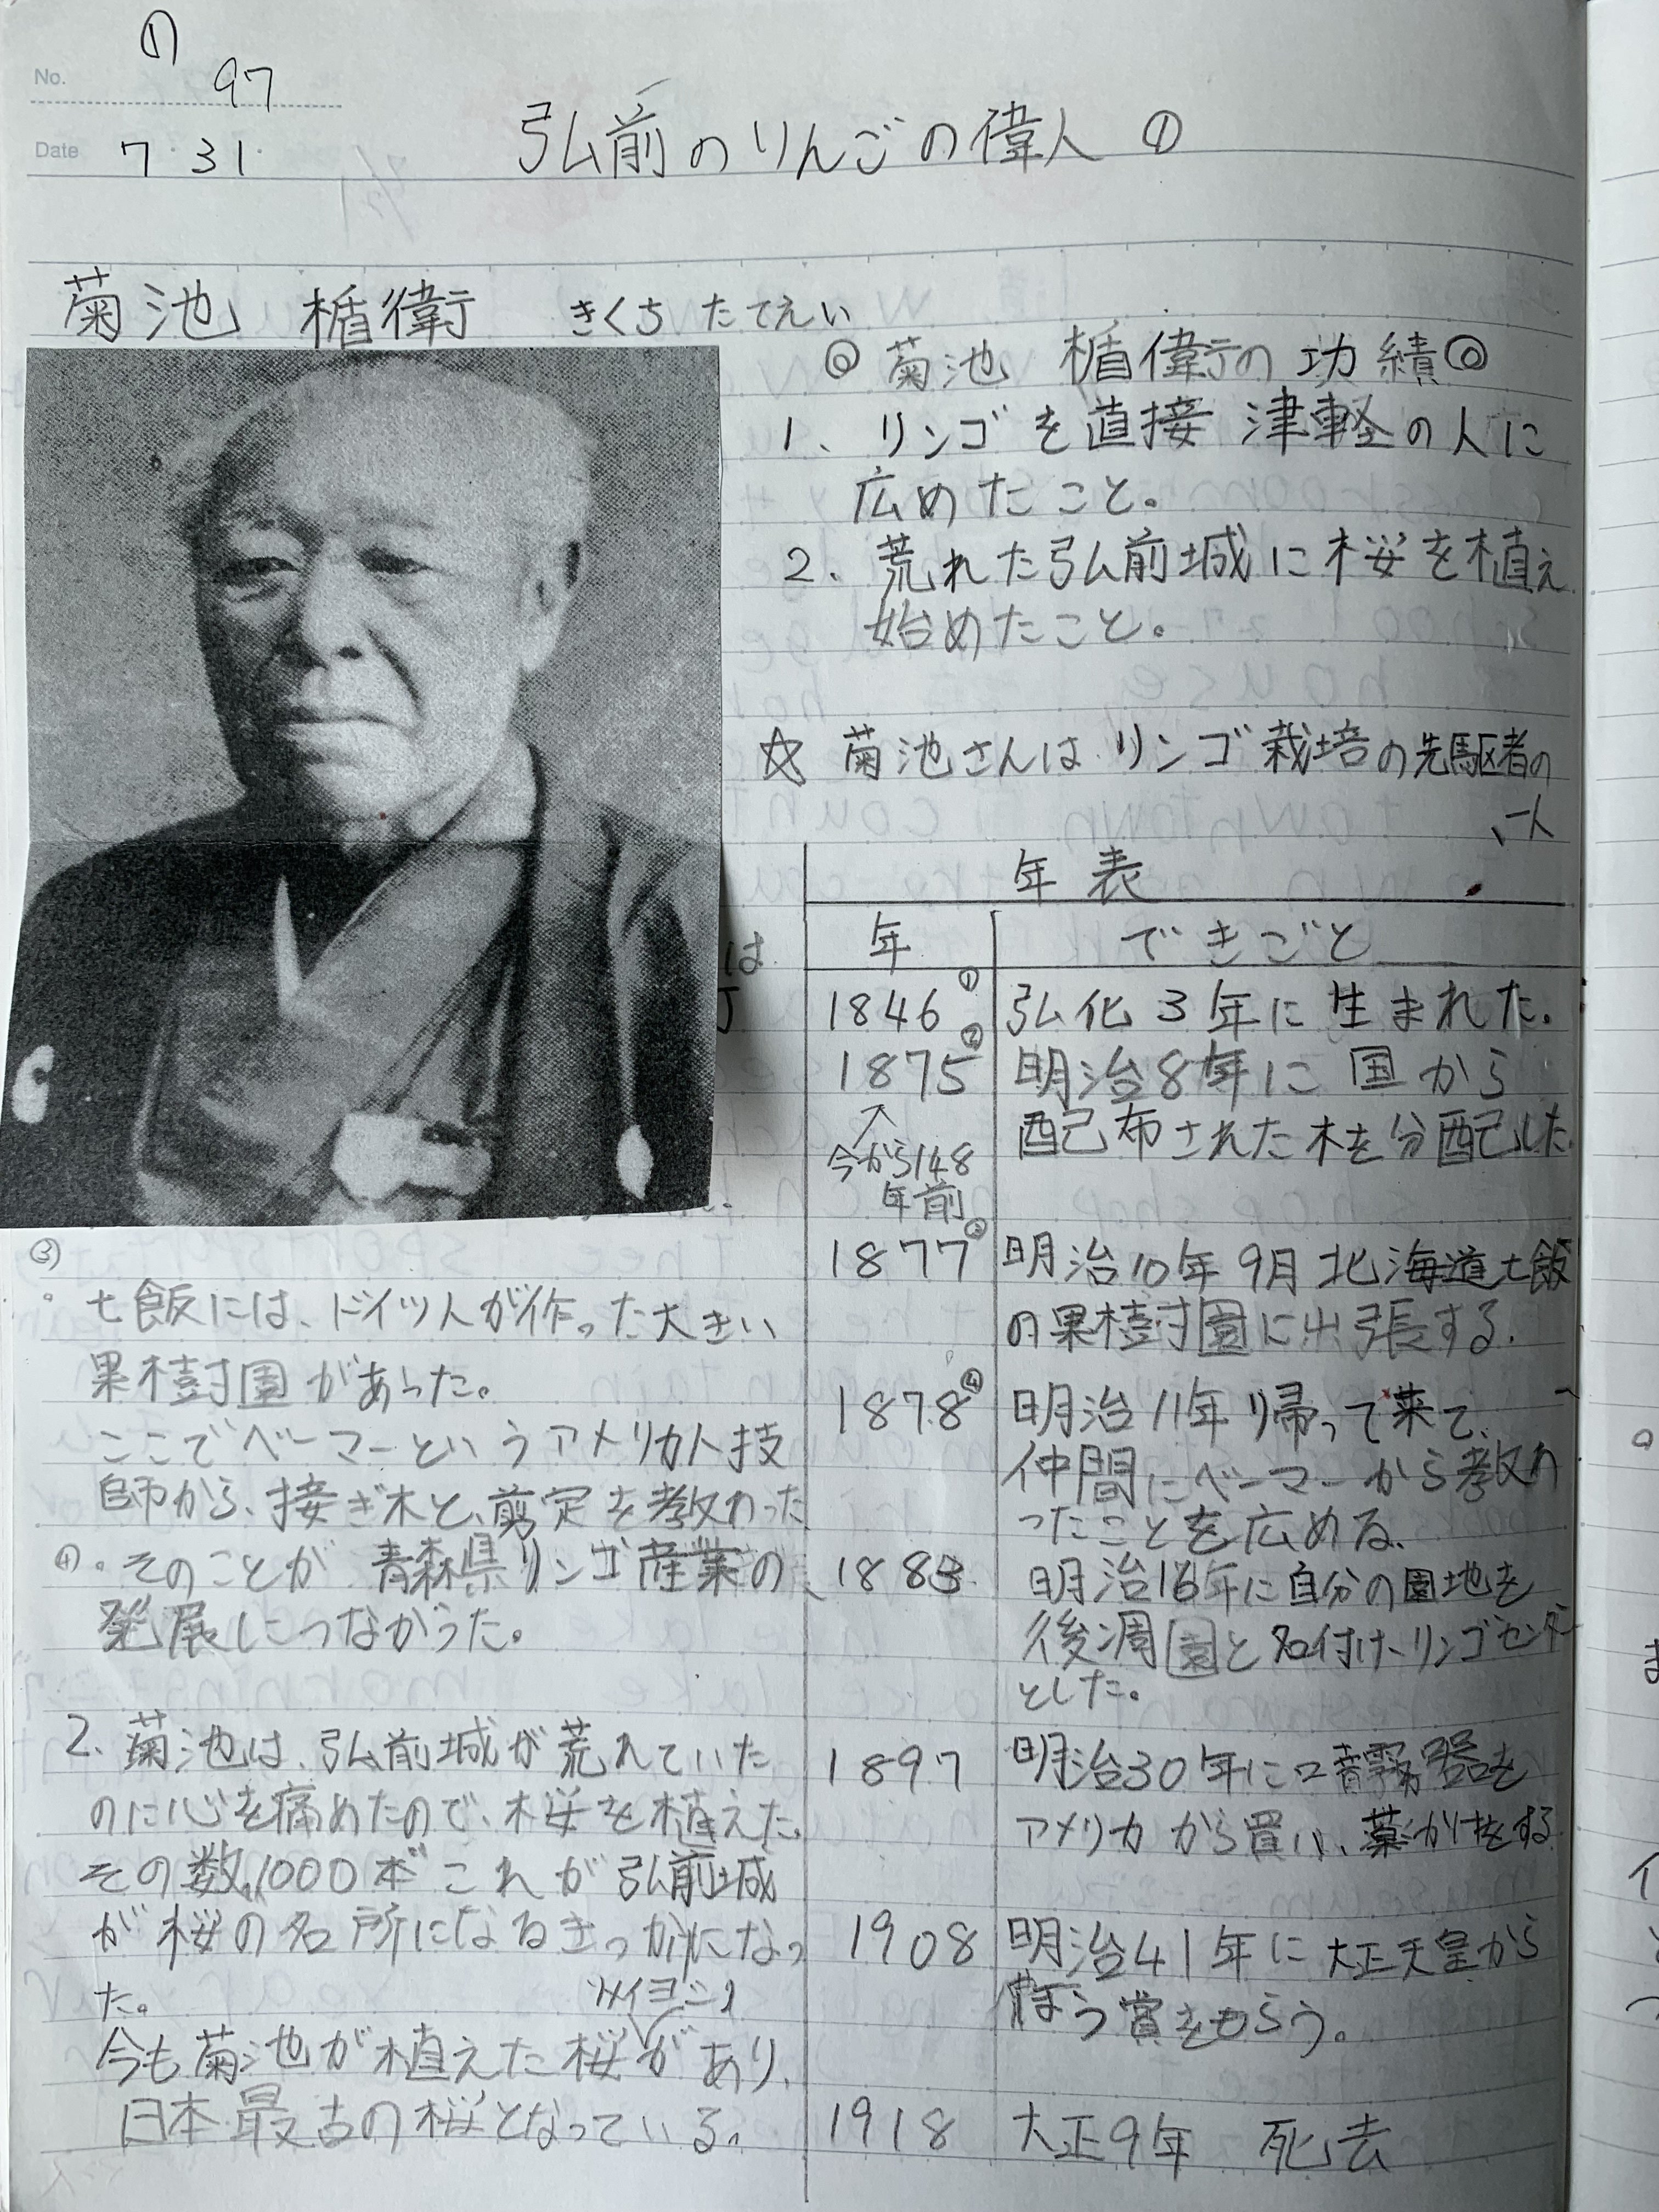 ①
No. 97
Date 7・31・
弘前のりんごの偉人 ①
菊池 楯衛 きくち たてえい
◎ 菊池 楯衛の 功績◎
1、リンゴを直接 津軽の人に
広めたこと。
2. 荒れた弘前城に桜を植え
始めたこと。
☆ 菊池さんは リンゴ栽培の先駆者の
一人
年表
年 できごと
1846① 弘化 3年に生まれた。
1875② 明治8年に 国から
配布された木を分配した。
↑
今から148
年前
1877③ 明治10年9月 北海道七飯
の果樹園に出張する.
1878④ 明治11年 帰って来て、
仲間にベーマーから教わ
ったことを広める.
1883 明治16年に自分の園地を
後凋園と名付け、リンゴセンター
とした。
1897 明治30年に噴霧器を
アメリカから買い、薬かけをする
1908 明治41年に大正天皇から
ほう賞をもらう。
1918 大正9年 死去
は
③
・七飯には、ドイツ人が作った大きい
果樹園があった。
ここでベーマーというアメリカ人技
師から、接ぎ木と、剪定を教わった
④・そのことが 青森県リンゴ産業の
発展につながった。
2、菊池は、弘前城が荒れていた
のに心を痛めたので、桜を植えた。
その数1000本 これが弘前城
が桜の名所になるきっかけになっ
た。
ソメイヨシノ
今も菊池が植えた桜があり、
日本最古の桜となっている。